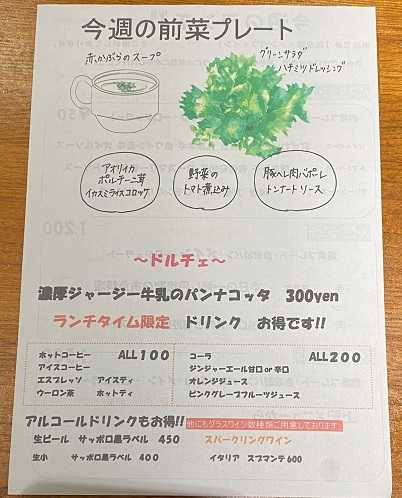 今週の前菜プレート
赤かぶらのスープ
グリーンサラダ
ハチミツドレッシング
アオリイカ
ポルチーニ茸
イカスミライスコロッケ
野菜の
トマト煮込み
豚ヒレ肉バポーレ
トンナートソース
～ドルチェ～
濃厚ジャージー牛乳のパンナコッタ 300yen
ランチタイム限定 ドリンク お得です!!
ホットコーヒー ALL100
アイスコーヒー
エスプレッソ アイスティ
ウーロン茶 ホットティ
コーラ ALL200
ジンジャーエール甘口or辛口
オレンジジュース
ピンクグレープフルーツジュース
アルコールドリンクもお得!! 他にもグラスワイン数種類ご用意しております
生ビール サッポロ黒ラベル 450 スパークリングワイン
生小 サッポロ黒ラベル 400 イタリア スプマンテ600